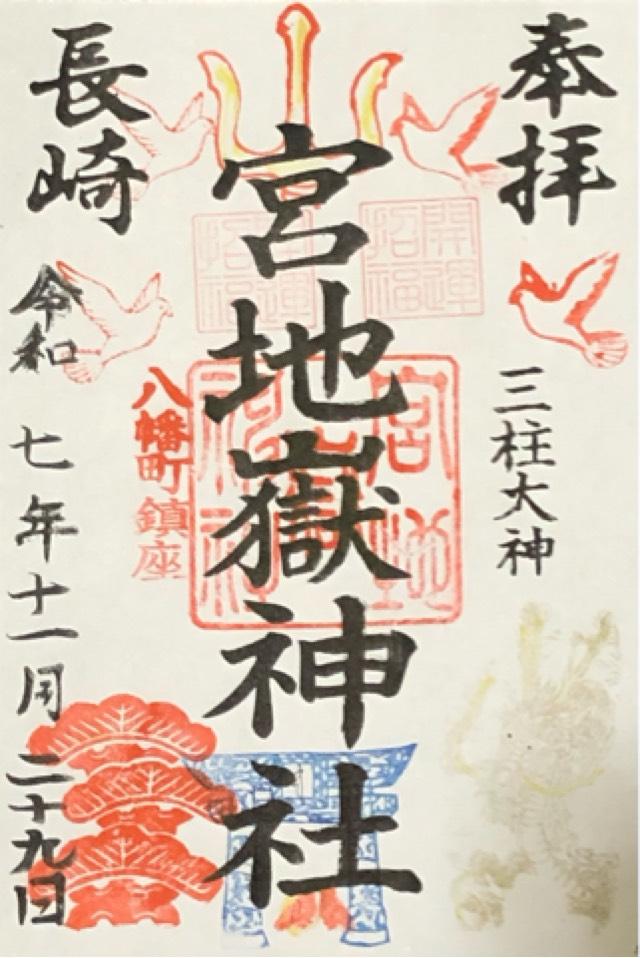 奉拝
三柱大神
開運招福
開運招福
宮地嶽神社
宮地嶽神社
八幡町鎮座
長崎
令和七年十一月二十九日